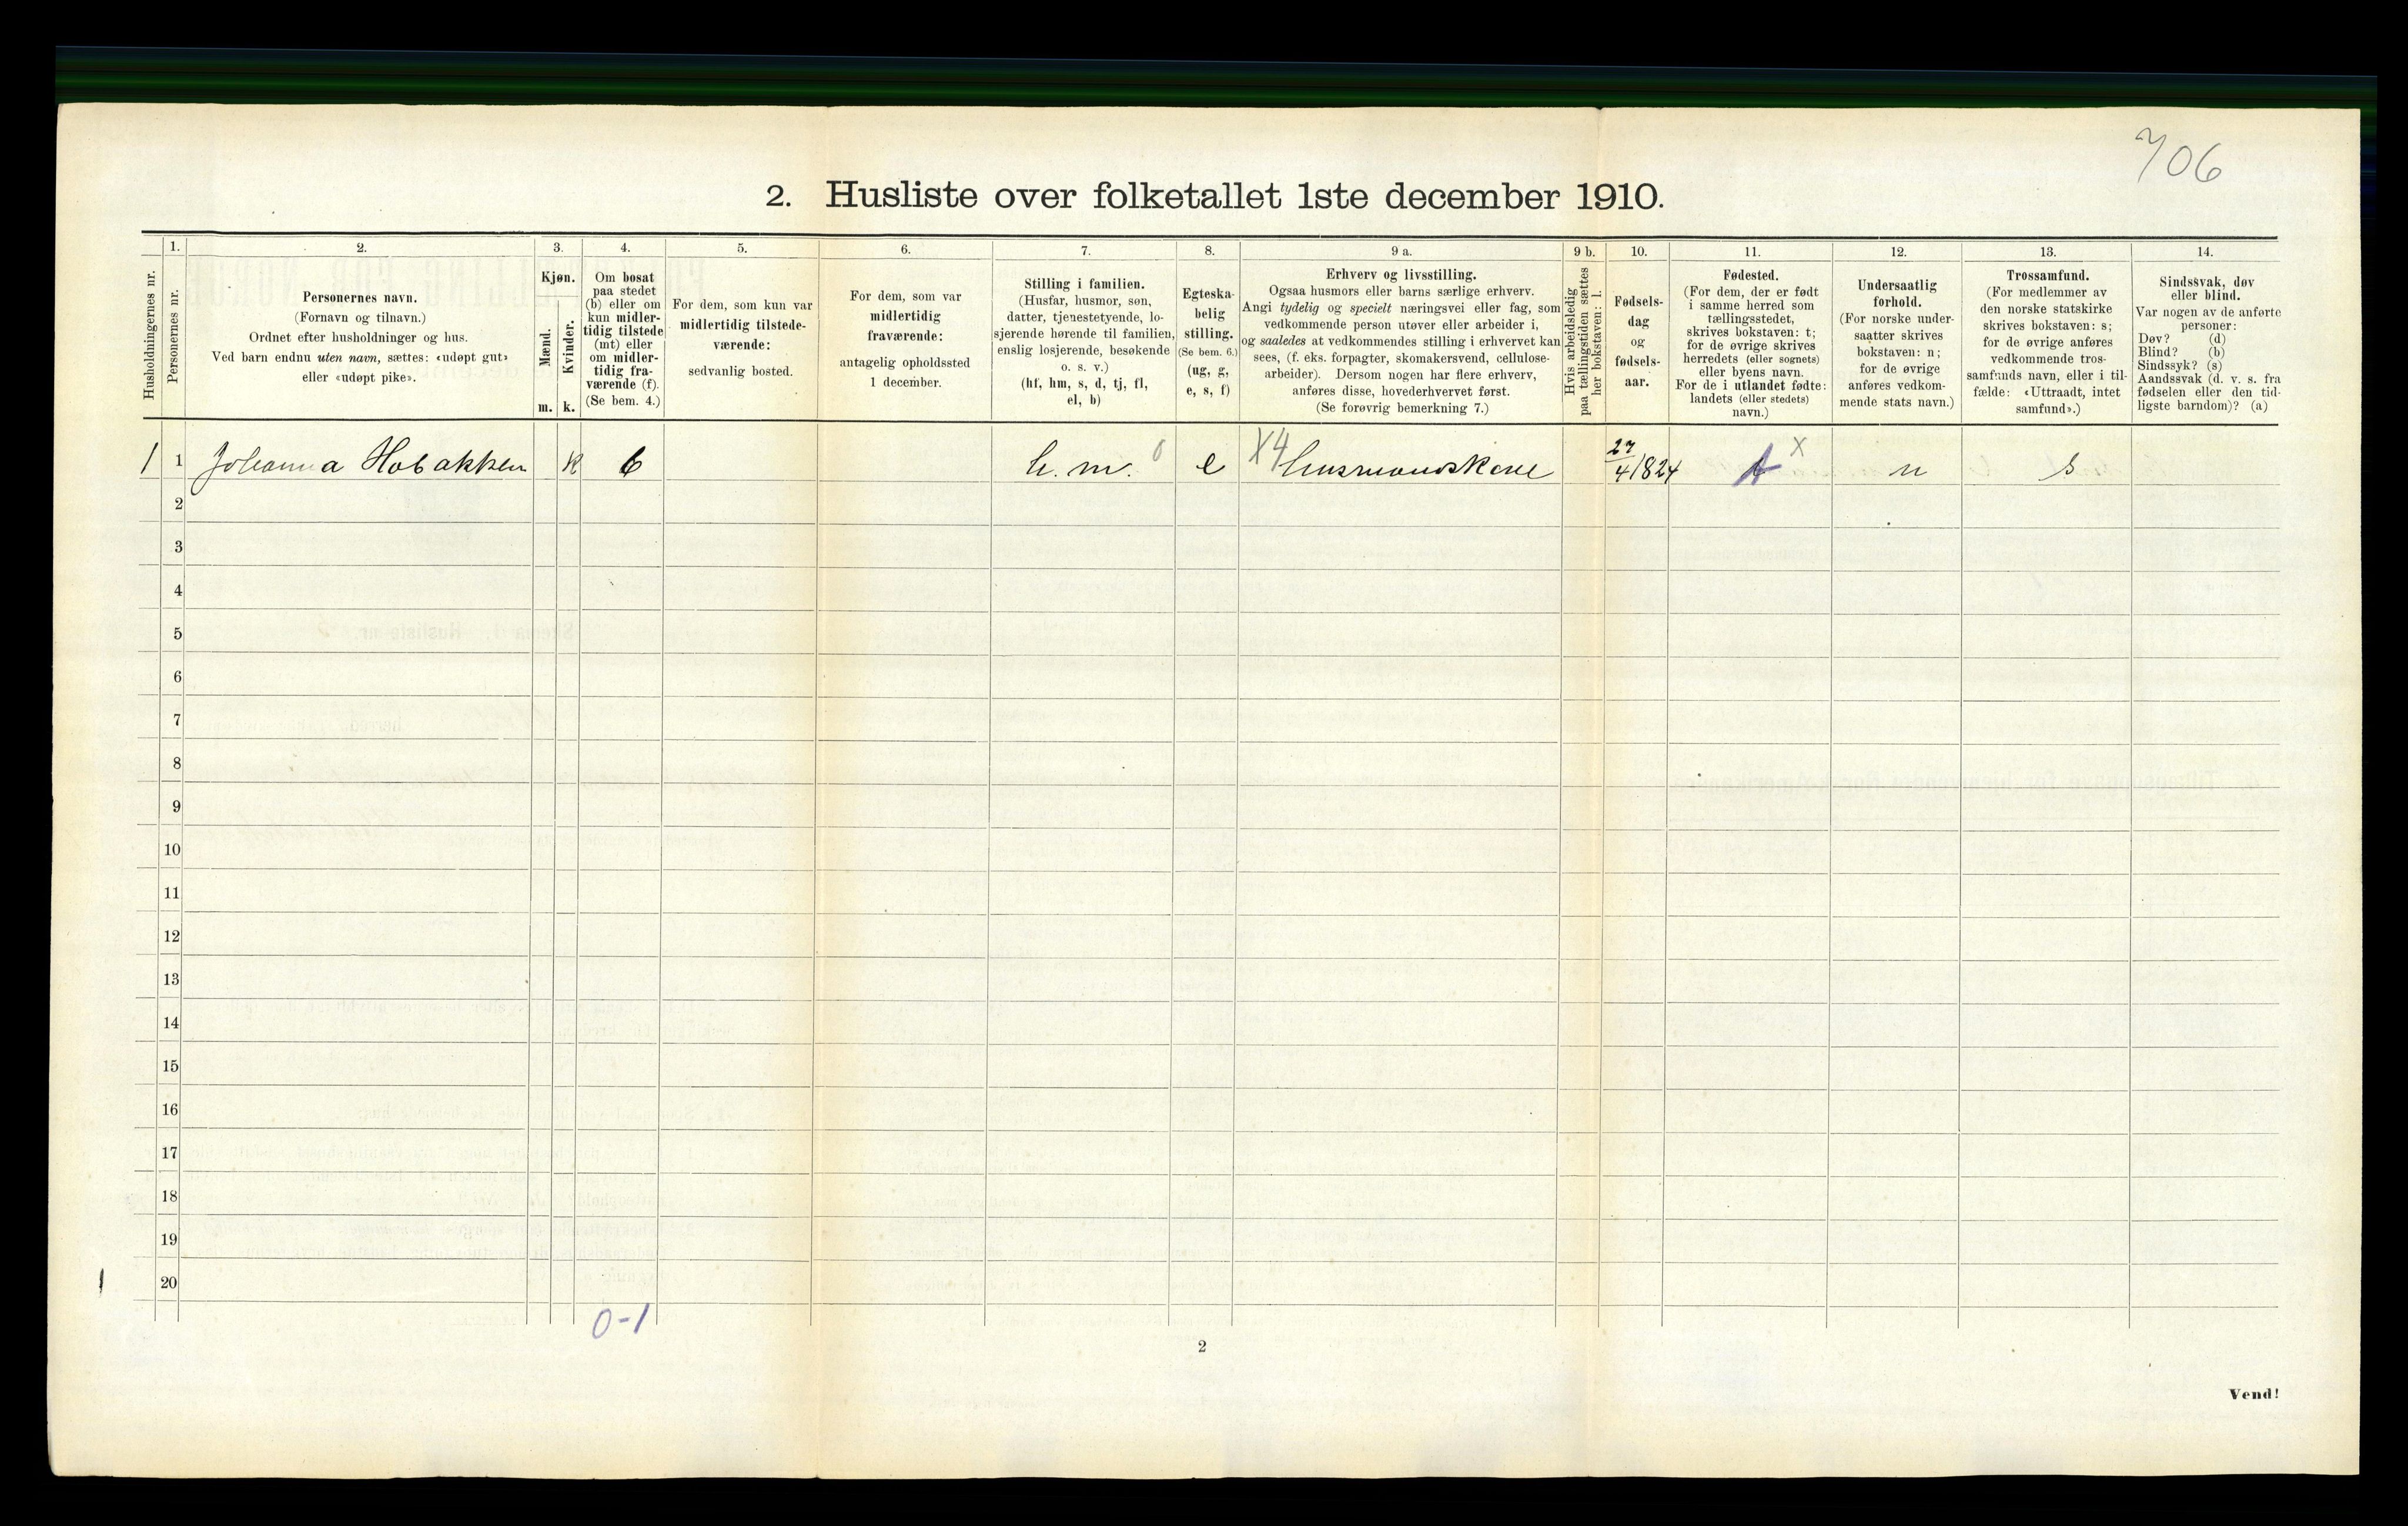 706
2. Husliste over folketallet 1ste december 1910.
Husholdningernes nr.
1.
Personernes nr.
2.
Personernes navn.
(Fornavn og tilnavn.)
Ordnet efter husholdninger og hus.
Ved barn endnu uten navn, sættes: «udøpt gut»
eller «udøpt pike».
3.
Kjøn.
Mænd.
m.
Kvinder.
k.
4.
Om bosat
paa stedet
(b) eller om
kun midler-
tidig tilstede
(mt) eller
om midler-
tidig fra-
værende (f).
(Se bem. 4.)
5.
For dem, som kun var
midlertidig tilstede-
værende:
sedvanlig bosted.
6.
For dem, som var
midlertidig
fraværende:
antagelig opholdssted
1 december.
7.
Stilling i familien.
(Husfar, husmor, søn,
datter, tjenestetyende, lo-
sjerende hørende til familien,
enslig losjerende, besøkende
o. s. v.)
(hf, hm, s, d, tj, fl,
el, b)
8.
Egteska-
belig
stilling.
(Se bem. 6.)
(ug, g,
e, s, f)
9 a.
Erhverv og livsstilling.
Ogsaa husmors eller barns særlige erhverv.
Angi tydelig og specielt næringsvei eller fag, som
vedkommende person utøver eller arbeider i,
og saaledes at vedkommendes stilling i erhvervet kan
sees, (f. eks. forpagter, skomakersvend, cellulose-
arbeider). Dersom nogen har flere erhverv,
anføres disse, hovederhvervet først.
(Se forøvrig bemerkning 7.)
9 b.
Hvis arbeidsledig
paa tællingstiden sættes
her bokstaven: l.
10.
Fødsels-
dag
og
fødsels-
aar.
11.
Fødested.
(For dem, der er født
i samme herred som
tællingsstedet,
skrives bokstaven: t;
for de øvrige skrives
herredets (eller sognets)
eller byens navn.
For de i utlandet fødte:
landets (eller stedets)
navn.)
12.
Undersaatlig
forhold.
(For norske under-
saatter skrives
bokstaven: n;
for de øvrige
anføres vedkom-
mende stats navn.)
13.
Trossamfund.
(For medlemmer av
den norske statskirke
skrives bokstaven: s;
for de øvrige anføres
vedkommende tros-
samfunds navn, eller i til-
fælde: «Uttraadt, intet
samfund».)
14.
Sindssvak, døv
eller blind.
Var nogen av de anførte
personer:
Døv? (d)
Blind? (b)
Sindssyk? (s)
Aandssvak (d. v. s. fra
fødselen eller den tid-
ligste barndom)? (a)
1 1 Johanna Hobakken k b h. m. 0 e X4 Husmandskone 27/4 1824 t X n s
2
3
4
5
6
7
8
9
10
11
12
13
14
15
16
17
18
19
20
0-1
2
Vend!